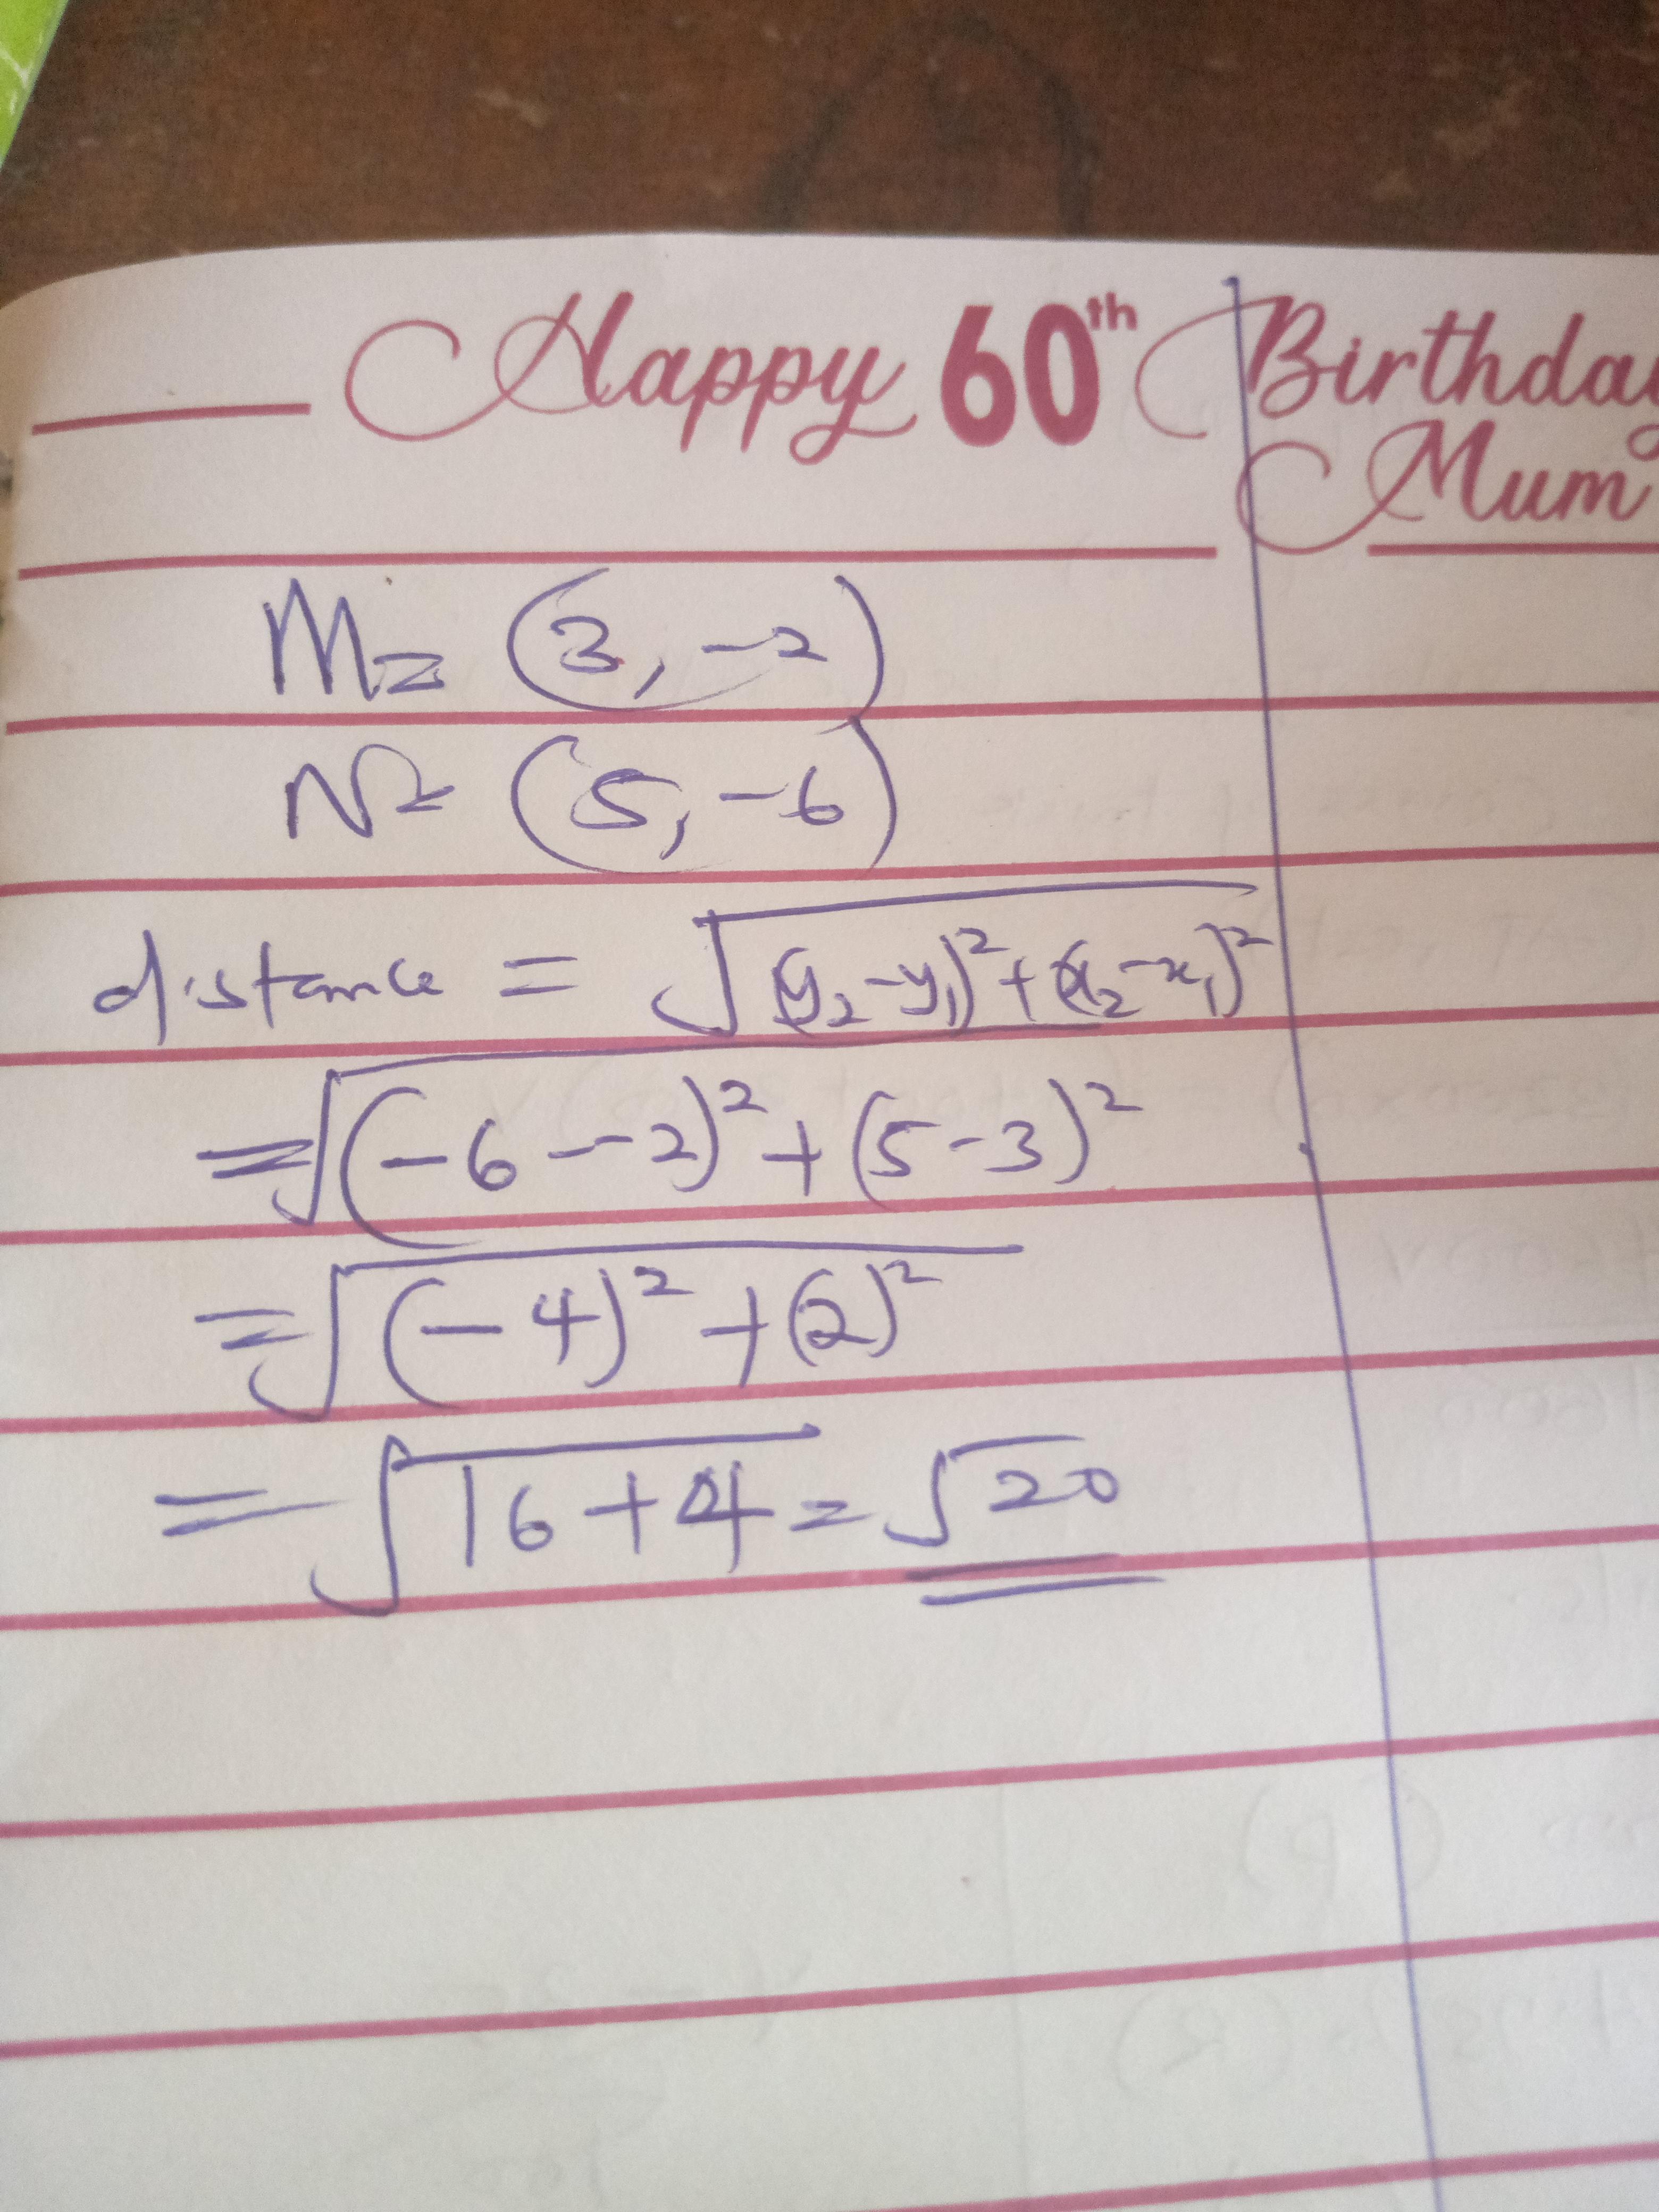 Happy 60th Birthday
Mum
M = (3, -2)
N = (5, -6)
distance = √(y₂-y₁)²+(x₂-x₁)²
=√(-6--2)²+(5-3)²
=√(-4)²+(2)²
=√16+4 = √20